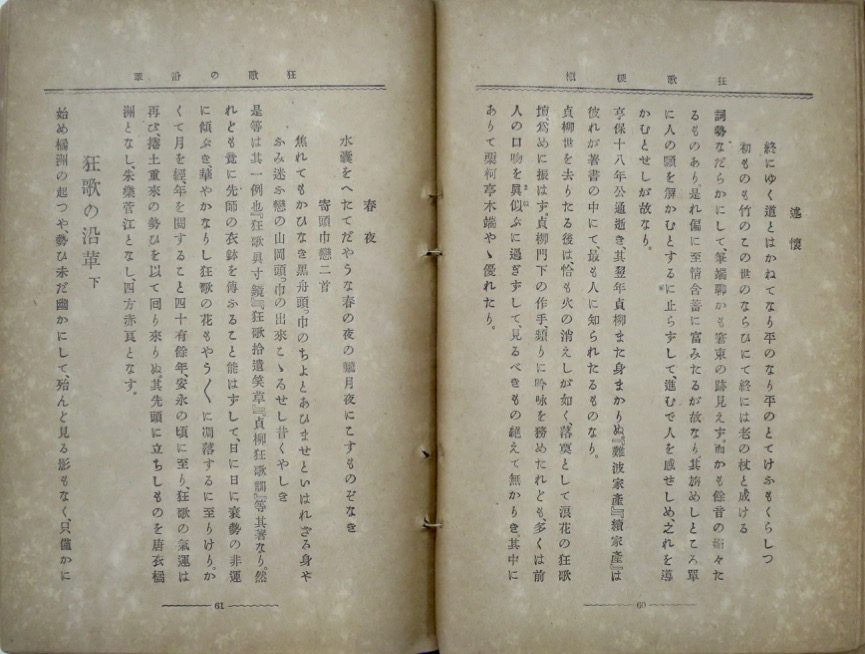 狂歌梗概
述懷
終にゆく道とはかねてなり平のなり平のとてけふもくらしつ
初ものも竹のこの世のならひにて終には老の杖と成ける
詞勢なだらかにして、筆端聊かも窘束の跡見えず、而かも餘音の嫋々た
るものあり。是れ偏に至情含蓄に富みたるが故なり。其諦めしところ單
に人の頤を解かむとするに止らずして、進むで人を感ぜしめ、之れを導
かむとせしが故なり。
享保十八年公通逝き、其翌年貞柳また身まかりぬ。『難波家產』『續家產』は
彼れが著書の中にて、最も人に知られたるものなり。
貞柳世を去りたる後は、恰も火の消えしが如く、落莫として浪花の狂歌
壇、爲めに振はず。貞柳門下の作手、頻りに吟咏を務めたれども多くは前
人の口吻を眞似ぶに過ぎずして、見るべきもの絕えて無かりき。其中に
ありて栗柯亭木端やゝ優れたり。
60
狂歌の沿革
春夜
水囊をへたてだやうな春の夜の朧月夜にこすものぞなき
寄頭巾戀二首
焦れてもかひなき黑舟頭巾のちよとあひませといはれざる身や
かみ迷ふ戀の山岡頭巾の出來こゝろせし昔くやしき
是等は其一例也。『狂歌眞寸鏡』『狂歌拾遺笑草』『貞柳狂歌訓』等其著なり。然
れども竟に先師の衣鉢を傳ふること能はずして、日に日に衰勢の非運
に傾ぶき、華やかなりし狂歌の花もやう〱に凋落するに至りけり。か
くて月を經、年を閱すること四十有餘年、安永の頃に至り、狂歌の氣運は
再び、捲土重來の勢ひを以て回り來りぬ。其先頭に立ちしものを唐衣橘
洲となし、朱樂菅江となし、四方赤良となす。
狂歌の沿革 下
始め橘洲の起つや勢ひ未だ幽かにして、殆んど見る影もなく、只僅かに
61